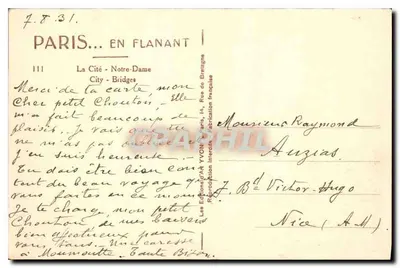 7.8.31.
PARIS... EN FLANANT
111
La Cité - Notre-Dame
City - Bridges
Merci de ta carte, mon
cher petit Chouton. Elle
m'a fait beaucoup de
plaisir. Je vois que
ne m'as pas
j'en suis heureuse.
Tu dois être bien con-
tent du beau voyage que
vous faites en ce moment
Je te charge, mon petit
Chouton de mes baisers
bien affectueux pour
vous tous. Une caresse
à Moumoutte. Tante
Les Editions d'Art YVON, Paris, 14, Rue de Bretagne
Reproduction interdite. Fabrication française
Monsieur Raymond
Auzias
7. Bd Victor-Hugo
Nice (A.M.)